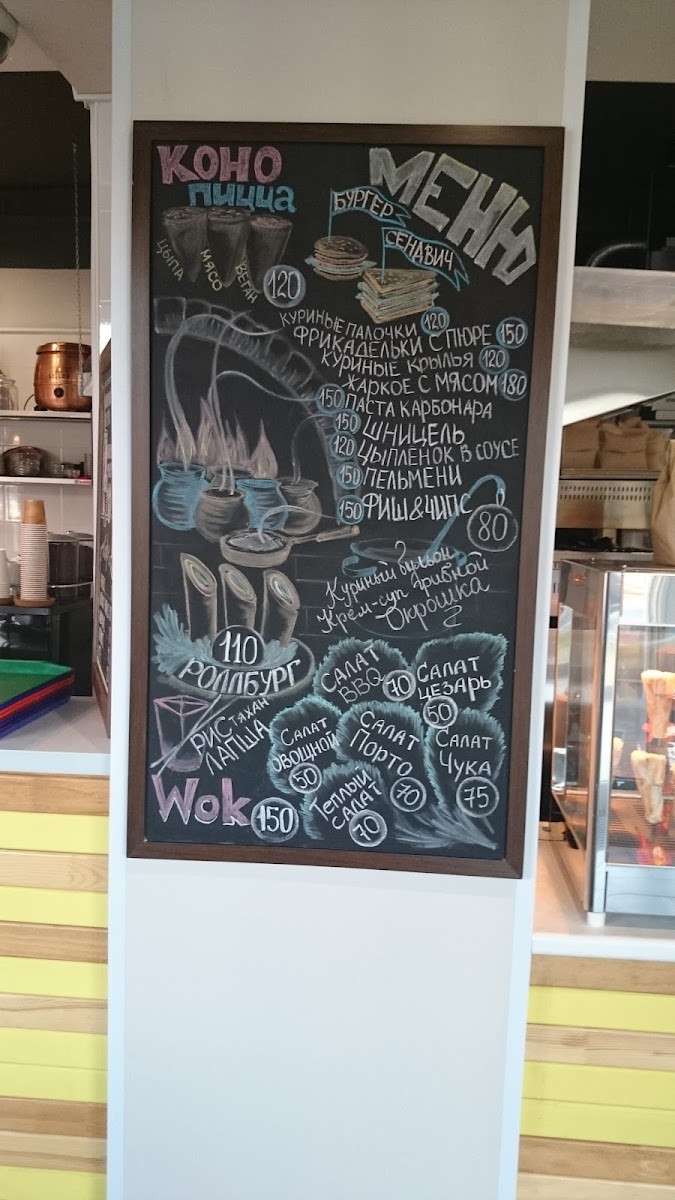 КОНО
ПИЦЦА
ЦЫПА
МЯСО
ВЕГАН
120
МЕНЮ
БУРГЕР
СЕНДВИЧ
КУРИНЫЕ ПАЛОЧКИ 120
ФРИКАДЕЛЬКИ С ПЮРЕ 150
КУРИНЫЕ КРЫЛЬЯ 120
ЖАРКОЕ С МЯСОМ 180
150 ПАСТА КАРБОНАРА
150 ШНИЦЕЛЬ
120 ЦЫПЛЁНОК В СОУСЕ
150 ПЕЛЬМЕНИ
150 ФИШ&ЧИПС
80
Куриный бульон
Крем-суп грибной
Окрошка
110
РОЛЛБУРГ
САЛАТ
BBQ 70
САЛАТ
ЦЕЗАРЬ
50
РИС ТЯХАН
ЛАПША
Wok 150
САЛАТ
ОВОЩНОЙ
50
САЛАТ
ПОРТО
70
САЛАТ
ЧУКА
75
ТЕПЛЫЙ
САЛАТ
70